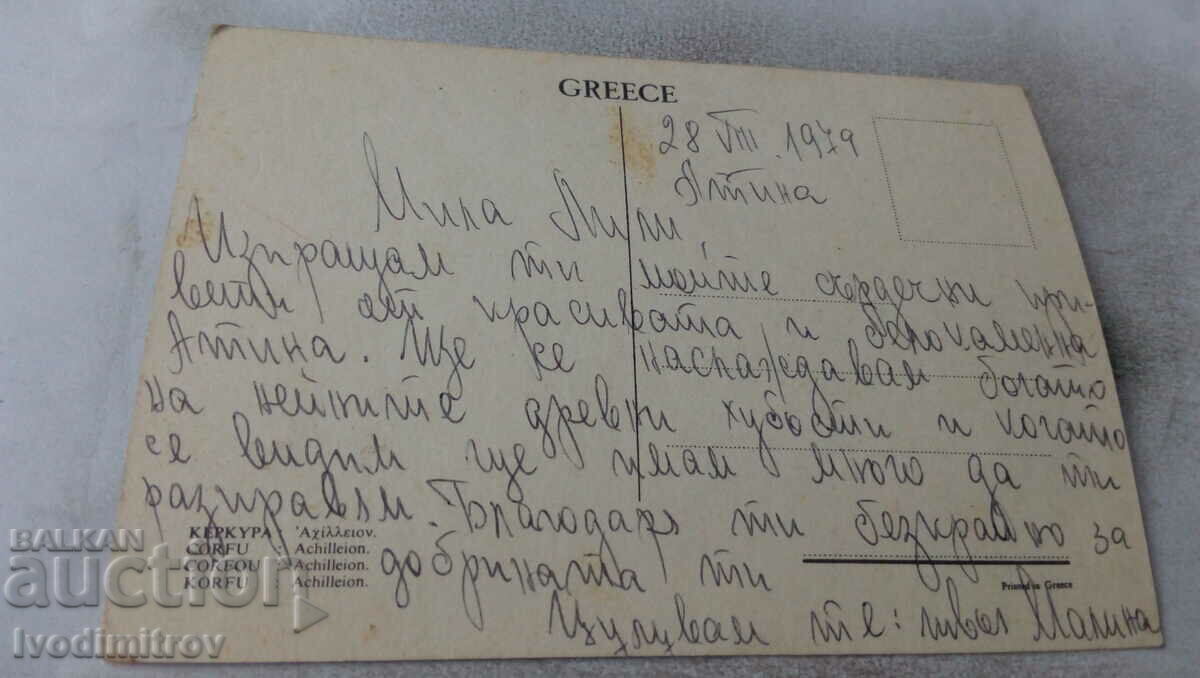 GREECE
28 VIII. 1979
Атина
Мила Лили,
Изпращам ти моите сърдечни при-
вети от красивата и белокаменна
Атина. Ще се наслаждавам богато
на нейните древни хубости и когато
се видим ще имам много да ти
разправям. Благодаря ти безкрайно за
добрината ти
Целувам те: твоя Малина
ΚΕΡΚΥΡΑ : Ἀχίλλειον.
CORFU : Achilleion.
CORFOU : Achilleion.
KORFU : Achilleion.
Printed in Greece
BALKAN
auction
Ivodimitrov